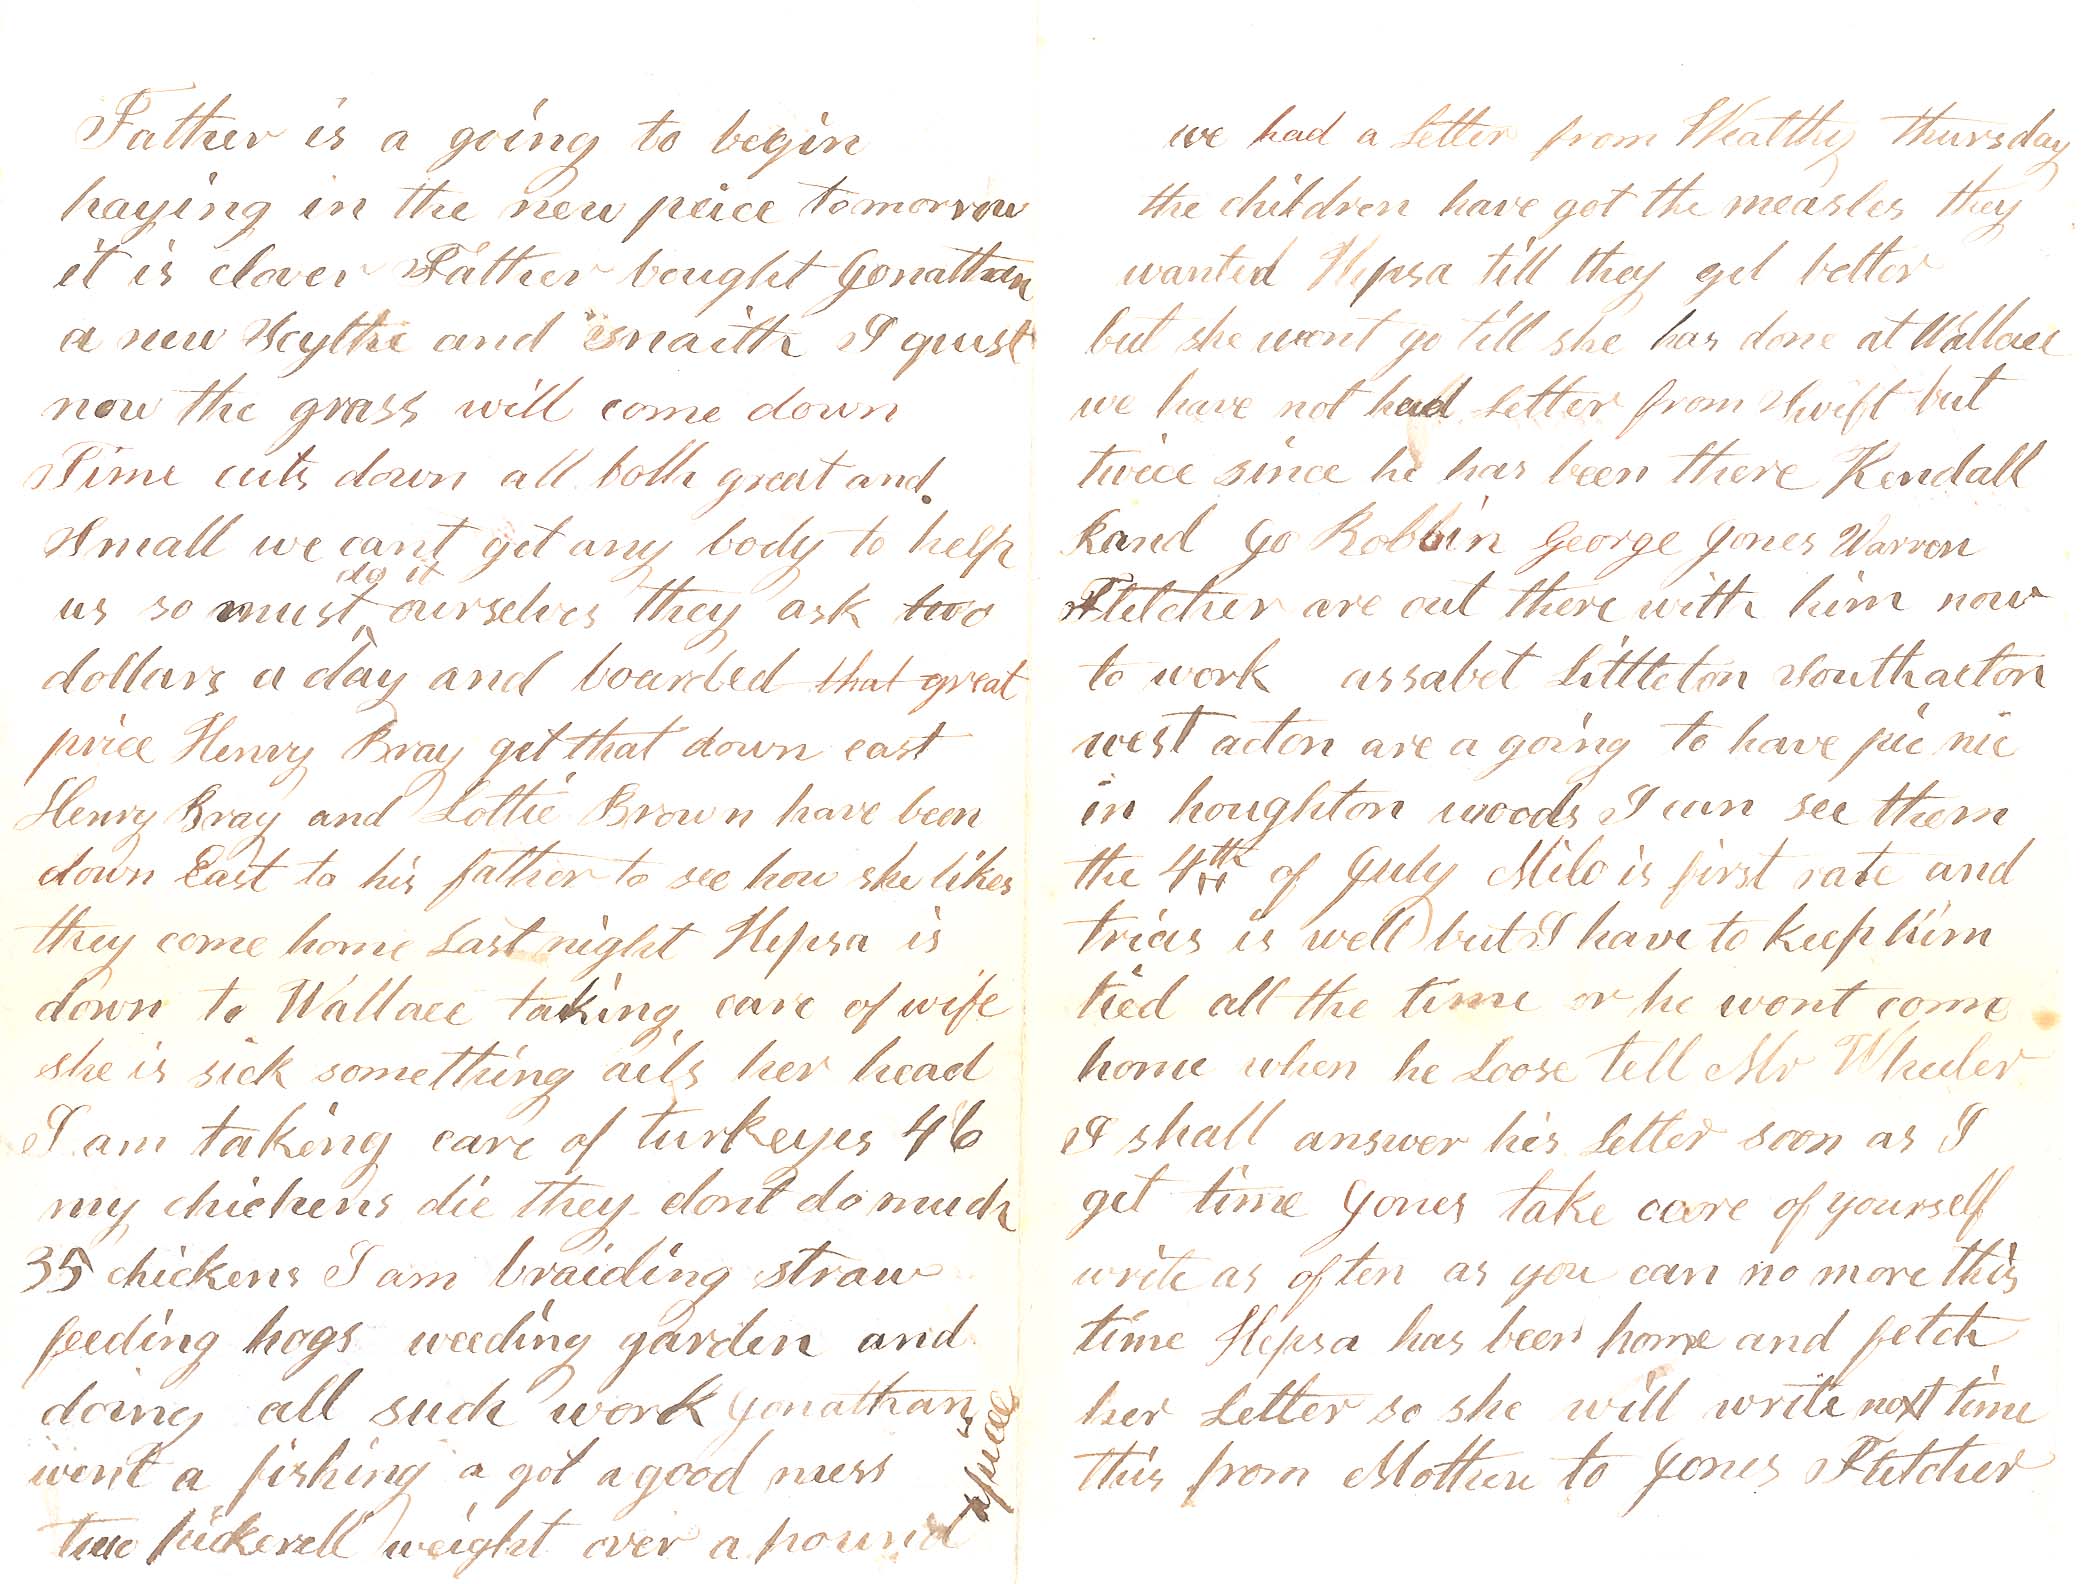 Father is a going to begin
haying in the new peice tomorrow
it is clover Father bought Jonathan
a new Scythe and snaith I guest
now the grass will come down
Time cuts down all both great and
Small we cant get any body to help
do it
us so must ourselves they ask two
dollars a day and boarded that great
price Henry Bray get that down east
Henry Bray and Lottie Brown have been
down East to his father to see how she likes
they come home Last night Hepsa is
down to Wallace taking care of wife
she is sick something ails her head
I am taking care of turkeyes 46
my chickens die they dont do much
35 chickens I am braiding straw
feeding hogs weeding garden and
doing all such work Jonathan
went a fishing a got a good mess
two pickerell weight over a pound
apiece
we had a Letter from Wealthy thursday
the children have got the measles they
wanted Hepsa till they get better
but she wont go till she has done at Wallace
we have not had Letter from Swift but
twice since he has been there Kendall
Rand Jo Robbin George Jones Warren
Fletcher are out there with him now
to work assabet Littleton Southacton
west acton are a going to have pic nic
in houghton woods I can see them
the 4th of July Milo is first rate and
trias is well but I have to keep him
tied all the time or he wont come
home when he Loose tell Mr Wheeler
I shall answer his Letter soon as I
get time Jones take care of yourself
write as often as you can no more this
time Hepsa has been home and fetch
her Letter so she will write next time
this from Mother to Jones Fletcher